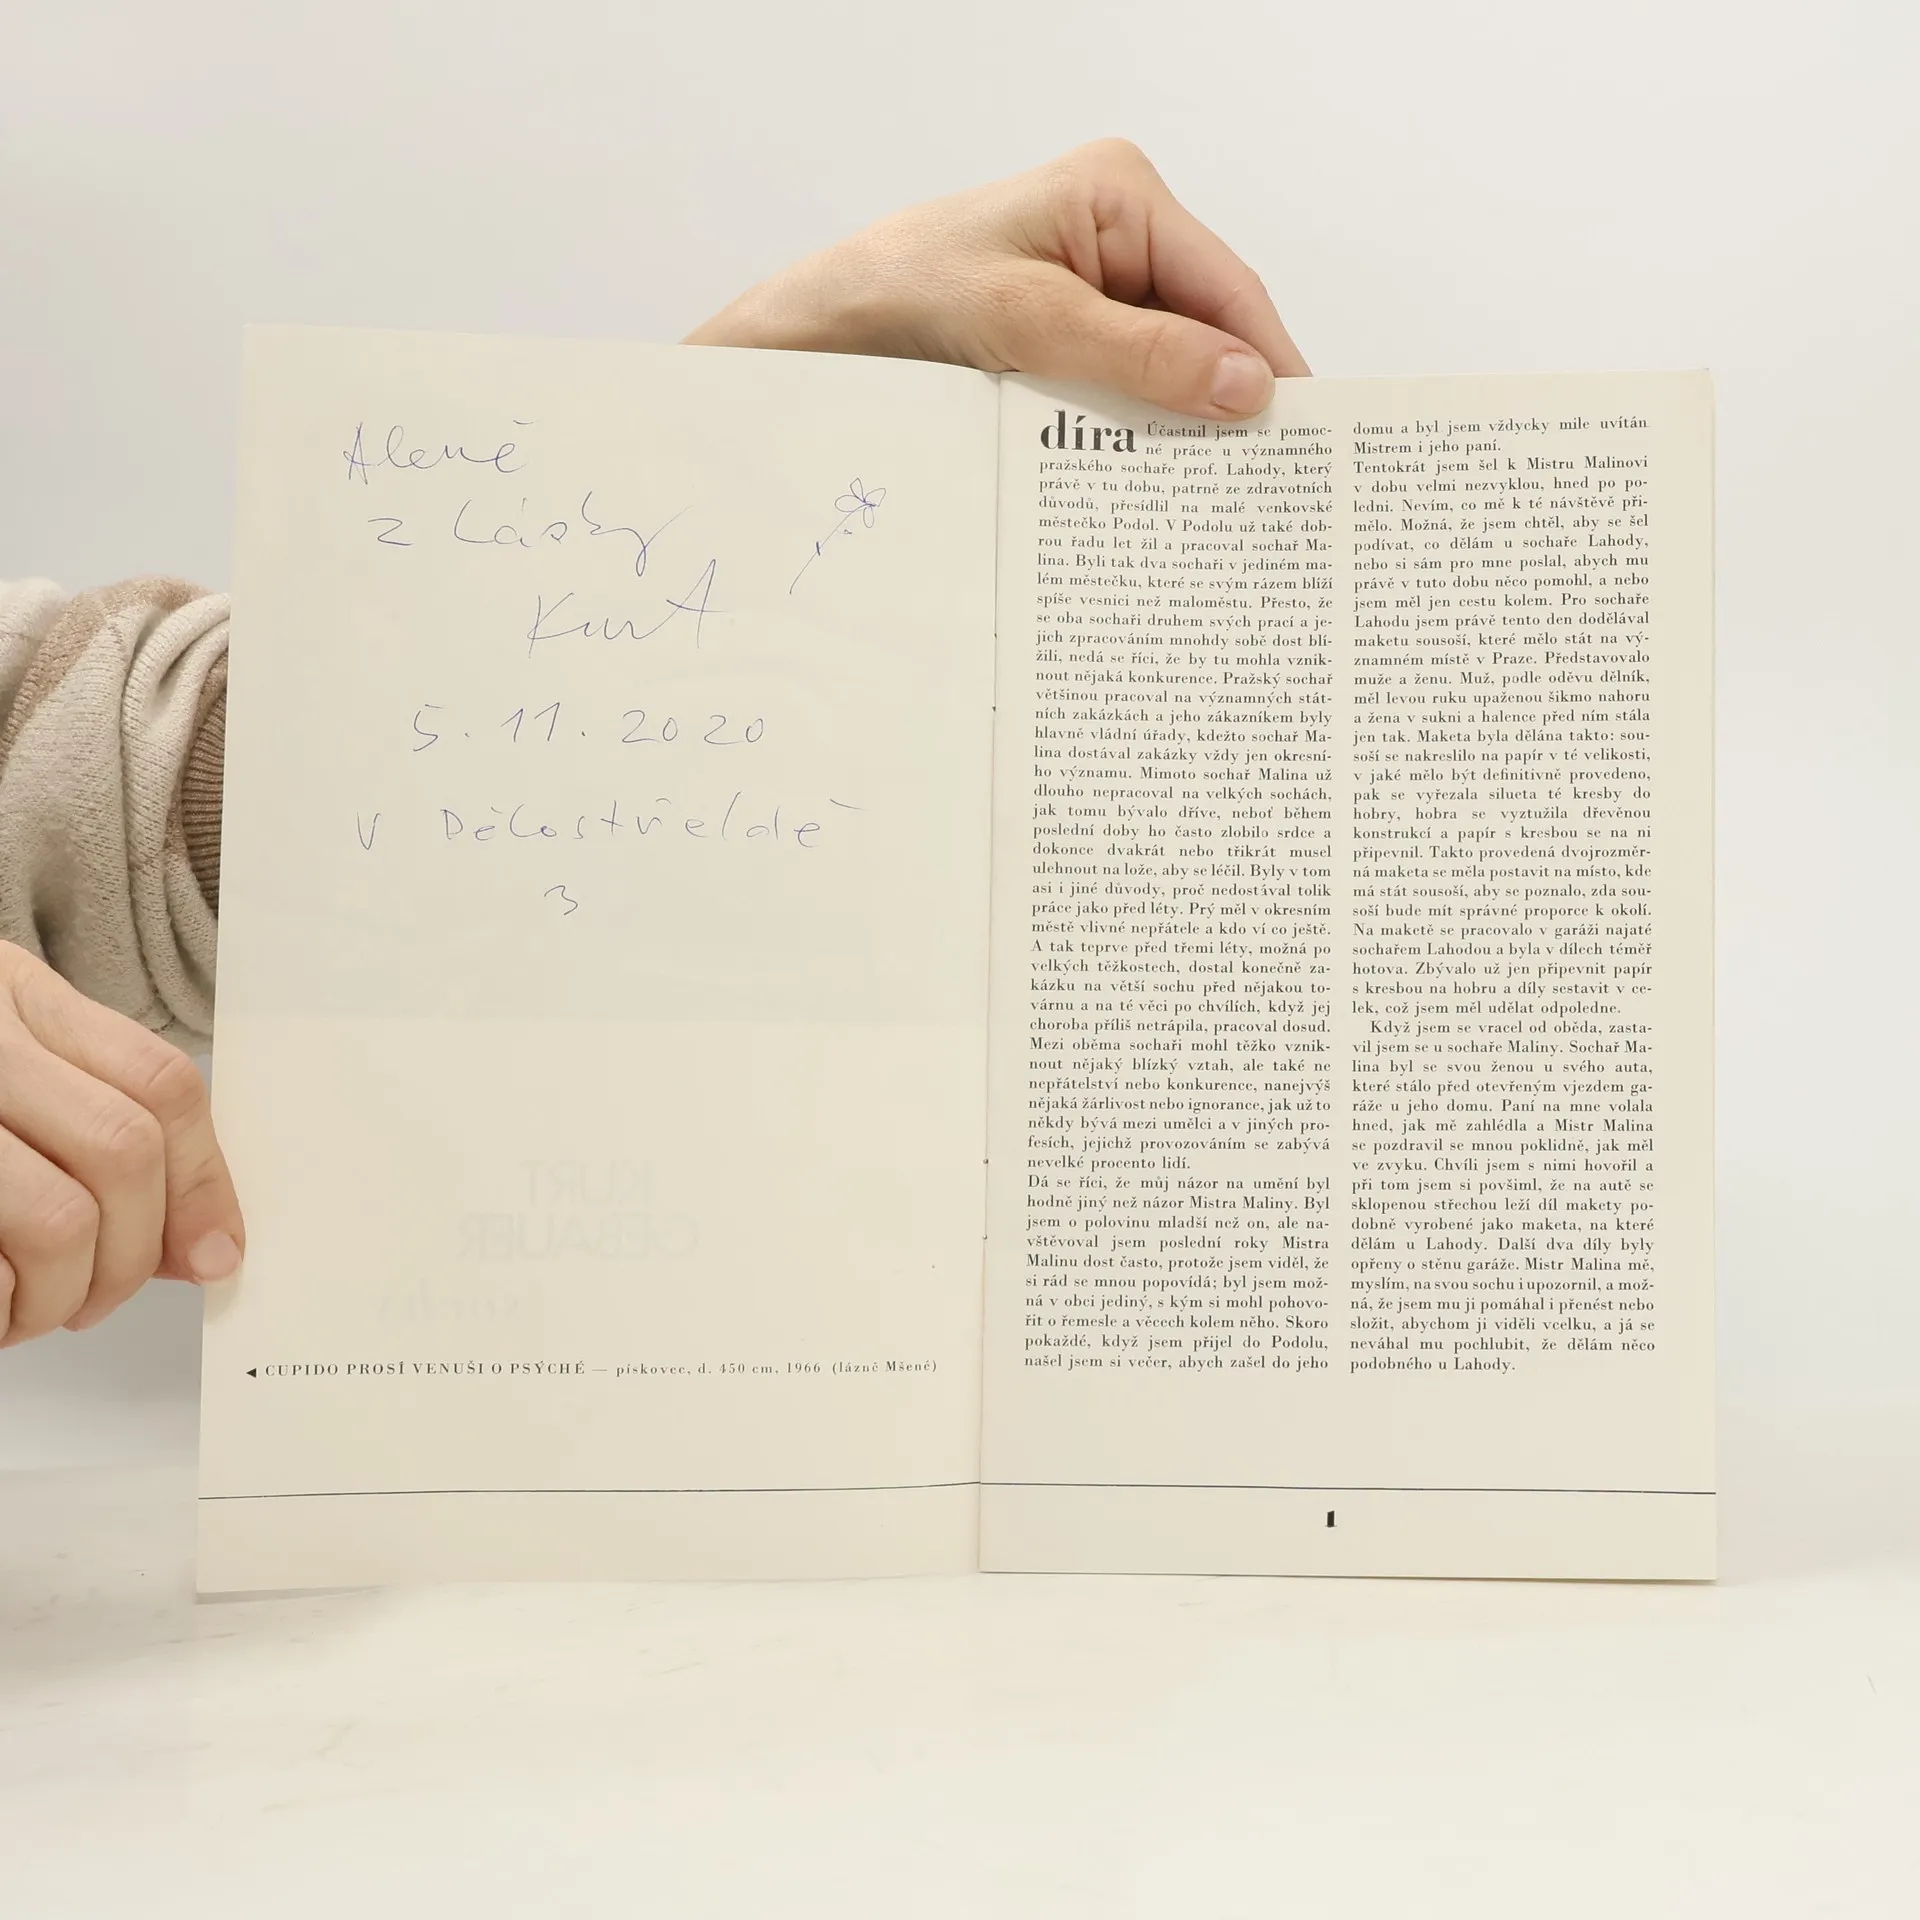 Aleně
z lásky
Kurt
5. 11. 2020
v Dělostřeldě
3
KURT
GEBAUER
◄ CUPIDO PROSÍ VENUŠI O PSÝCHÉ — pískovec, d. 450 cm, 1966 (lázně Mšené)
díra Účastnil jsem se pomoc-
né práce u významného
pražského sochaře prof. Lahody, který
právě v tu dobu, patrně ze zdravotních
důvodů, přesídlil na malé venkovské
městečko Podol. V Podolu už také dob-
rou řadu let žil a pracoval sochař Ma-
lina. Byli tak dva sochaři v jediném ma-
lém městečku, které se svým rázem blíží
spíše vesnici než maloměstu. Přesto, že
se oba sochaři druhem svých prací a je-
jich zpracováním mnohdy sobě dost blí-
žili, nedá se říci, že by tu mohla vznik-
nout nějaká konkurence. Pražský sochař
většinou pracoval na významných stát-
ních zakázkách a jeho zákazníkem byly
hlavně vládní úřady, kdežto sochař Ma-
lina dostával zakázky vždy jen okresní-
ho významu. Mimoto sochař Malina už
dlouho nepracoval na velkých sochách,
jak tomu bývalo dříve, neboť během
poslední doby ho často zlobilo srdce a
dokonce dvakrát nebo třikrát musel
ulehnout na lože, aby se léčil. Byly v tom
asi i jiné důvody, proč nedostával tolik
práce jako před léty. Prý měl v okresním
městě vlivné nepřátele a kdo ví co ještě.
A tak teprve před třemi léty, možná po
velkých těžkostech, dostal konečně za-
kázku na větší sochu před nějakou to-
várnu a na té věci po chvílích, když jej
choroba příliš netrápila, pracoval dosud.
Mezi oběma sochaři mohl těžko vznik-
nout nějaký blízký vztah, ale také ne
nepřátelství nebo konkurence, nanejvýš
nějaká žárlivost nebo ignorance, jak už to
někdy bývá mezi umělci a v jiných pro-
fesích, jejichž provozováním se zabývá
nevelké procento lidí.
Dá se říci, že můj názor na umění byl
hodně jiný než názor Mistra Maliny. Byl
jsem o polovinu mladší než on, ale na-
vštěvoval jsem poslední roky Mistra
Malinu dost často, protože jsem viděl, že
si rád se mnou popovídá; byl jsem mož-
ná v obci jediný, s kým si mohl pohovo-
řit o řemesle a věcech kolem něho. Skoro
pokaždé, když jsem přijel do Podolu,
našel jsem si večer, abych zašel do jeho
domu a byl jsem vždycky mile uvítán
Mistrem i jeho paní.
Tentokrát jsem šel k Mistru Malinovi
v dobu velmi nezvyklou, hned po po-
ledni. Nevím, co mě k té návštěvě při-
mělo. Možná, že jsem chtěl, aby se šel
podívat, co dělám u sochaře Lahody,
nebo si sám pro mne poslal, abych mu
právě v tuto dobu něco pomohl, a nebo
jsem měl jen cestu kolem. Pro sochaře
Lahodu jsem právě tento den dodělával
maketu sousoší, které mělo stát na vý-
znamném místě v Praze. Představovalo
muže a ženu. Muž, podle oděvu dělník,
měl levou ruku upaženou šikmo nahoru
a žena v sukni a halence před ním stála
jen tak. Maketa byla dělána takto: sou-
soší se nakreslilo na papír v té velikosti,
v jaké mělo být definitivně provedeno,
pak se vyřezala silueta té kresby do
hobry, hobra se vyztužila dřevěnou
konstrukcí a papír s kresbou se na ni
připevnil. Takto provedená dvojrozměr-
ná maketa se měla postavit na místo, kde
má stát sousoší, aby se poznalo, zda sou-
soší bude mít správné proporce k okolí.
Na maketě se pracovalo v garáži najaté
sochařem Lahodou a byla v dílech téměř
hotova. Zbývalo už jen připevnit papír
s kresbou na hobru a díly sestavit v ce-
lek, což jsem měl udělat odpoledne.
Když jsem se vracel od oběda, zasta-
vil jsem se u sochaře Maliny. Sochař Ma-
lina byl se svou ženou u svého auta,
které stálo před otevřeným vjezdem ga-
ráže u jeho domu. Paní na mne volala
hned, jak mě zahlédla a Mistr Malina
se pozdravil se mnou poklidně, jak měl
ve zvyku. Chvíli jsem s nimi hovořil a
při tom jsem si povšiml, že na autě se
sklopenou střechou leží díl makety po-
dobně vyrobené jako maketa, na které
dělám u Lahody. Další dva díly byly
opřeny o stěnu garáže. Mistr Malina mě,
myslím, na svou sochu i upozornil, a mož-
ná, že jsem mu ji pomáhal i přenést nebo
složit, abychom ji viděli vcelku, a já se
neváhal mu pochlubit, že dělám něco
podobného u Lahody.
1